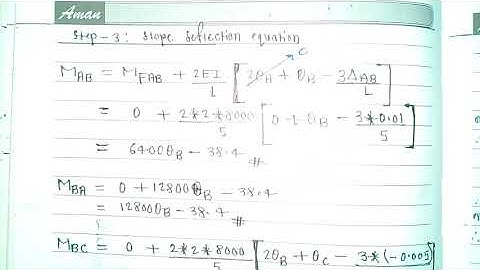 Aman
Step-3: slope deflection equation
M_AB = M_FAB + 2EI/L [2θ_A + θ_B - 3Δ_AB/L]
= 0 + 2*2*8000/5 [0 + θ_B - 3*0.01/5]
= 6400θ_B - 38.4 #
M_BA = 0 + 12800θ_B - 38.4
= 12800θ_B - 38.4 #
M_BC = 0 + 2*2*8000/5 [2θ_B + θ_C - 3*(-0.005)